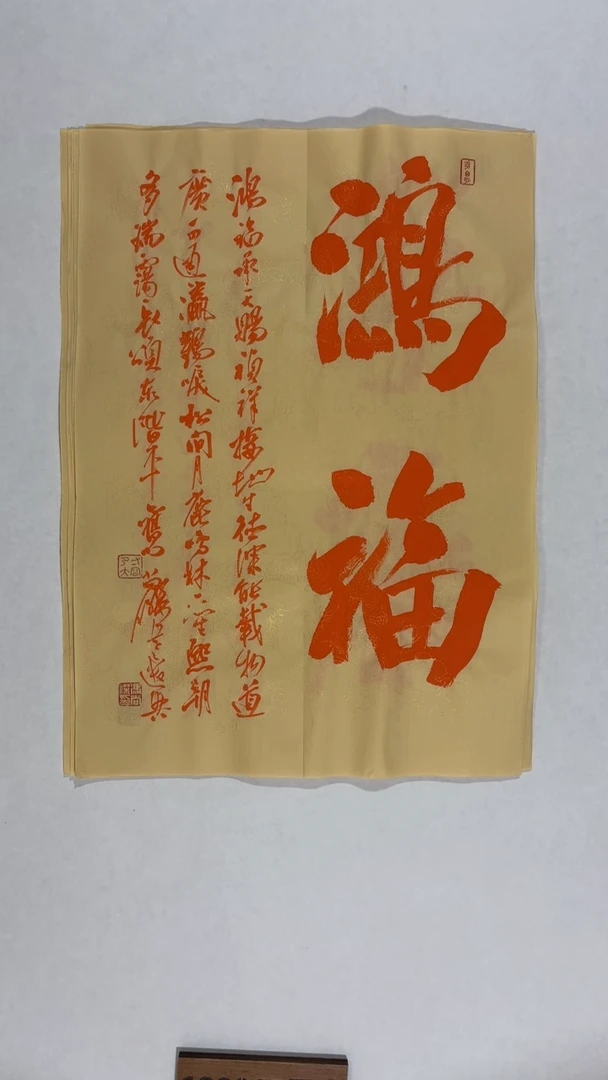 鴻福
鴻福承天賜禎祥接地生德深能載物道
廣可通瀛鶴唳松間月鹿鳴林下笙熙朝
多瑞靄長頌泰階平